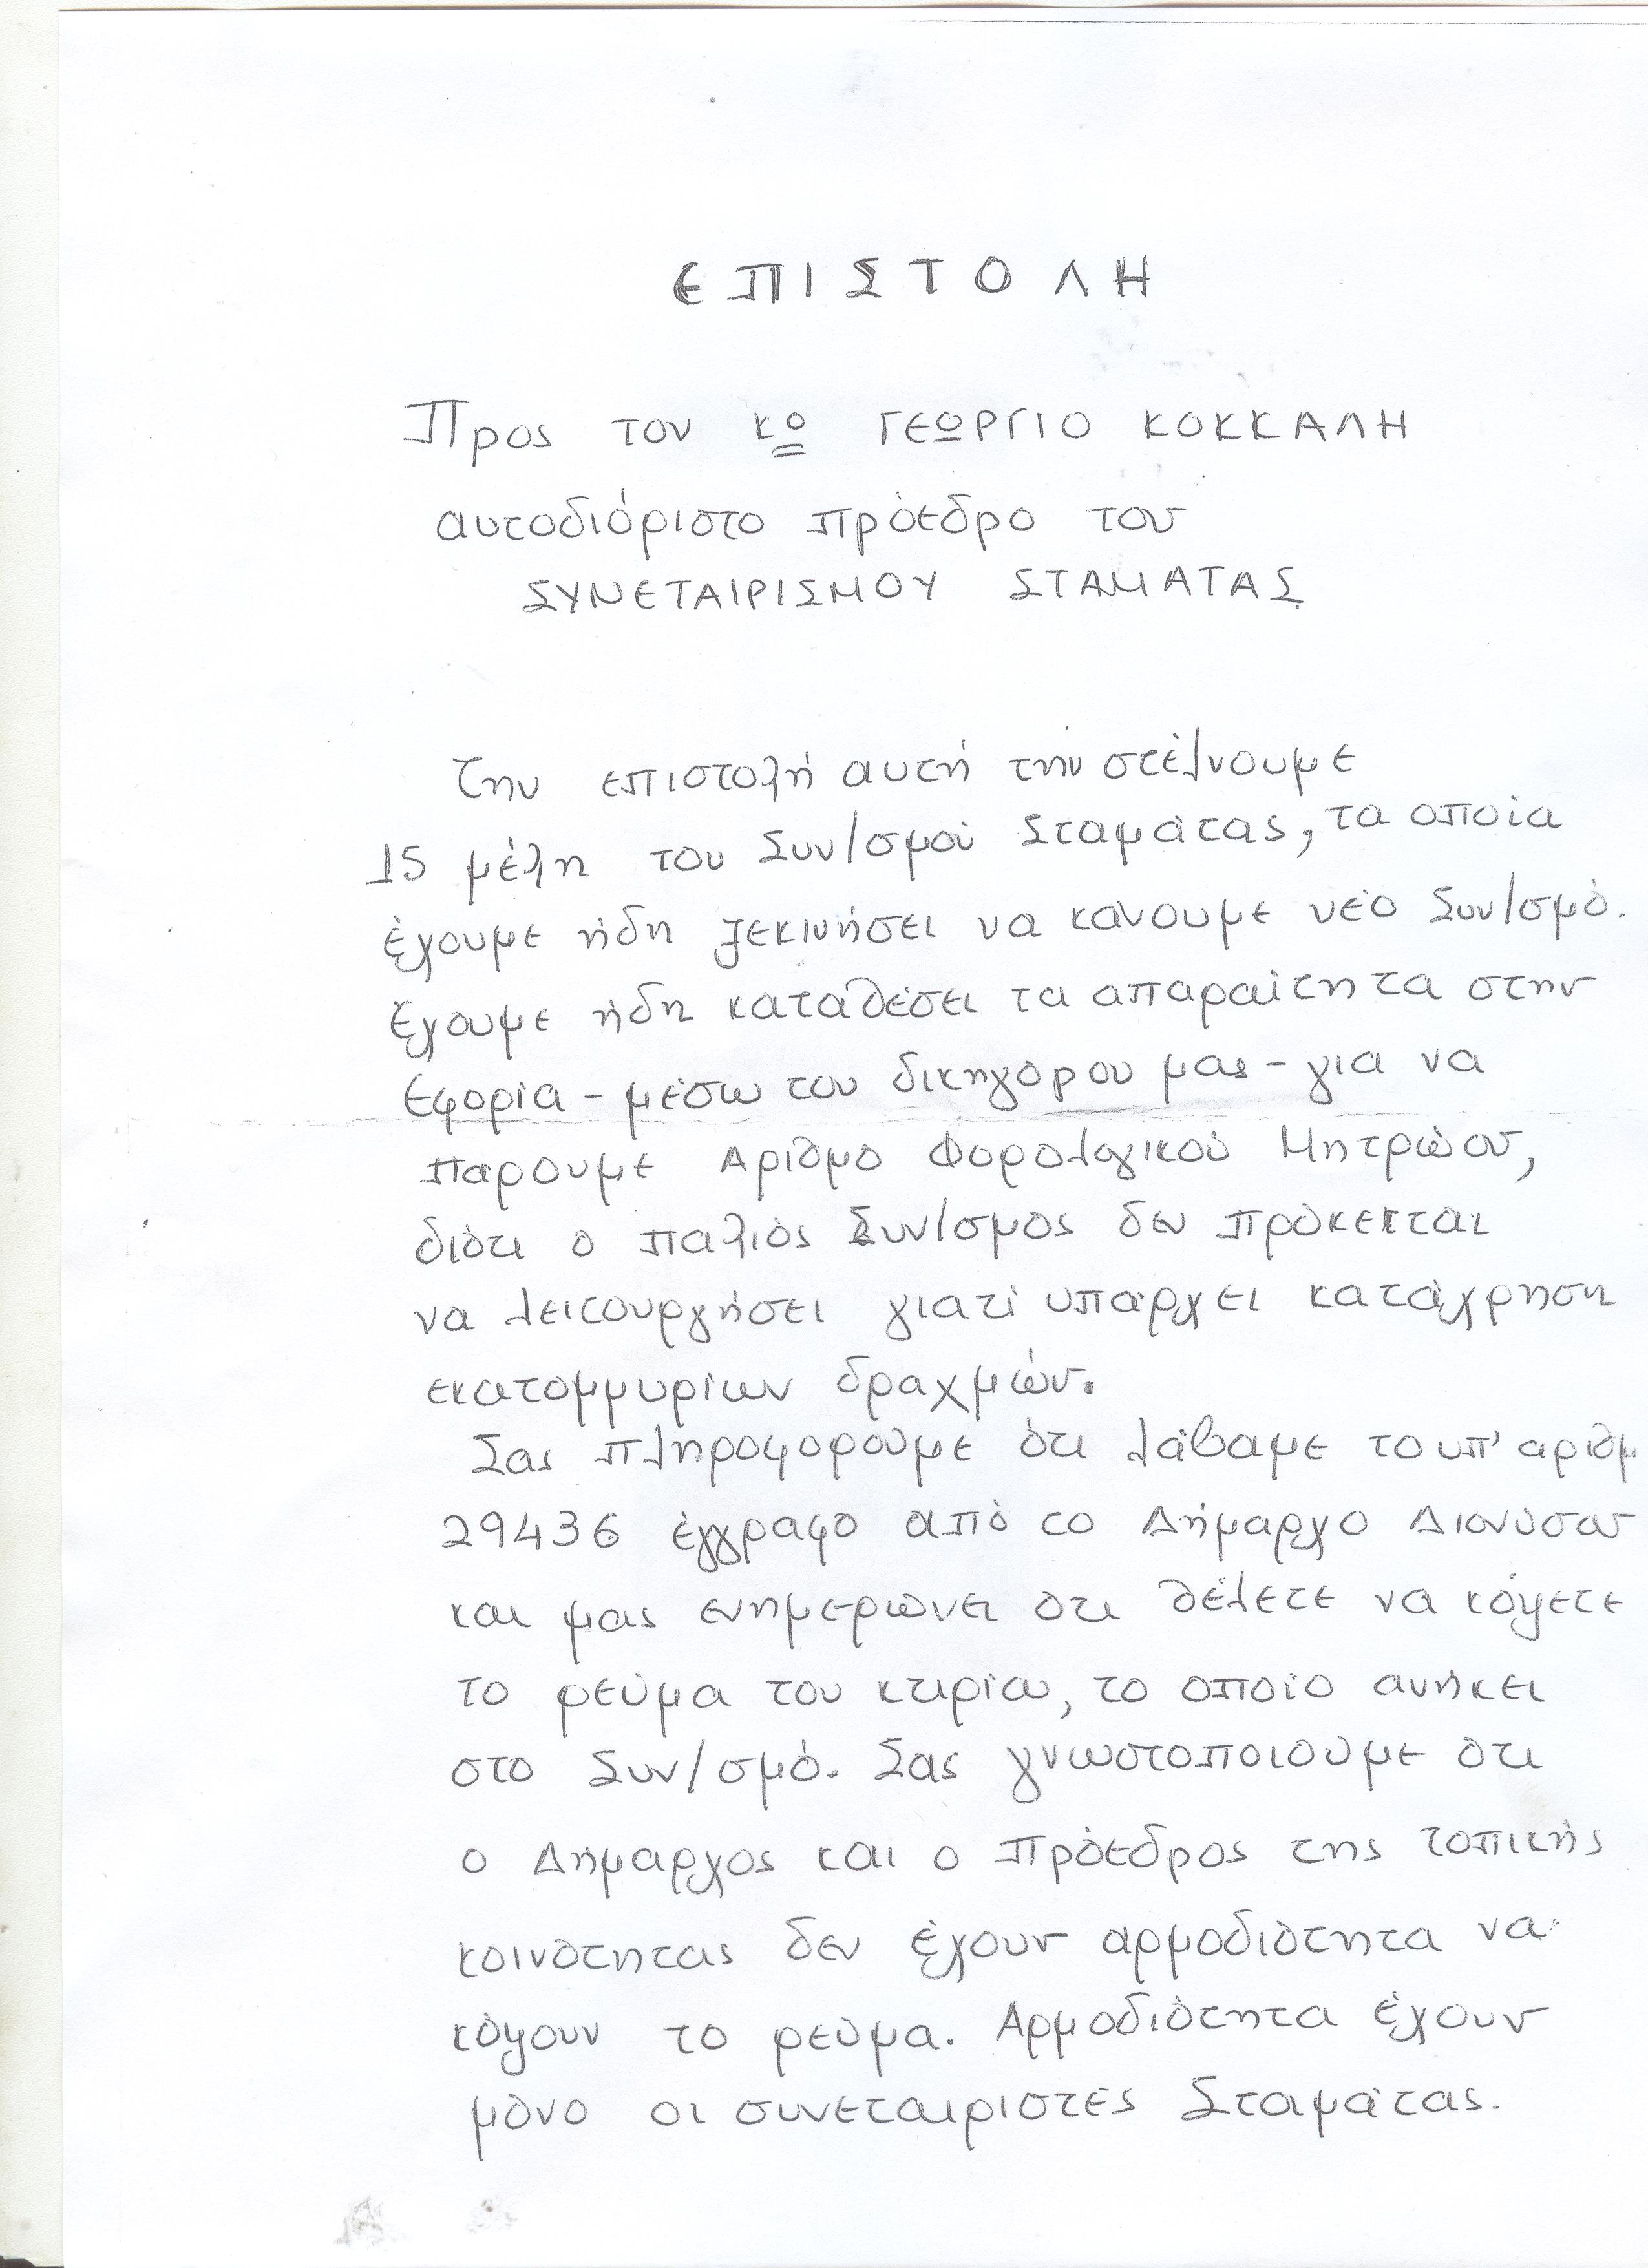 ΕΠΙΣΤΟΛΗ
Προς τον κο ΓΕΩΡΓΙΟ ΚΟΚΚΑΛΗ
αυτοδιόριστο πρόεδρο του
ΣΥΝΕΤΑΙΡΙΣΜΟΥ ΣΤΑΜΑΤΑΣ
Την επιστολή αυτή την στέλνουμε
15 μέλη του Συν/σμού Σταμάτας, τα οποία
έχουμε ήδη ξεκινήσει να κάνουμε νέο Συν/σμό.
Έχουμε ήδη καταθέσει τα απαραίτητα στην
Εφορία - μέσω του δικηγόρου μας - για να
πάρουμε Αριθμό Φορολογικού Μητρώου,
διότι ο παλιός Συν/σμος δεν πρόκειται
να λειτουργήσει γιατί υπάρχει κατάχρηση
εκατομμυρίων δραχμών.
Σας πληροφορούμε ότι λάβαμε το υπ' αριθμ
29436 έγγραφο από το Δήμαρχο Διονύσου
και μας ενημερώνει ότι θέλετε να κόψετε
το ρεύμα του κτιρίου, το οποίο ανήκει
στο Συν/σμό. Σας γνωστοποιούμε ότι
ο Δήμαρχος και ο Πρόεδρος της τοπικής
κοινότητας δεν έχουν αρμοδιότητα να
κόψουν το ρεύμα. Αρμοδιότητα έχουν
μόνο οι συνεταιριστές Σταμάτας.